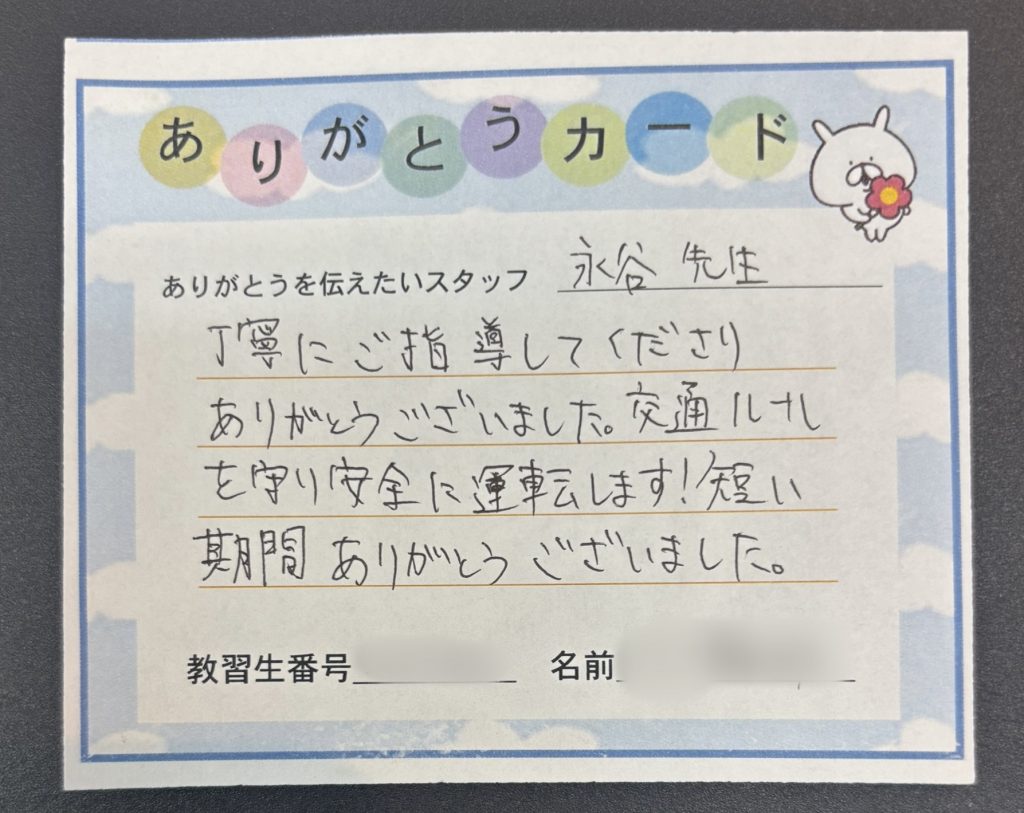 ありがとうカード
ありがとうを伝えたいスタッフ 永谷 先生
丁寧にご指導してくださり
ありがとうございました。交通ルール
を守り安全に運転します!短い
期間ありがとうございました。
教習生番号 名前